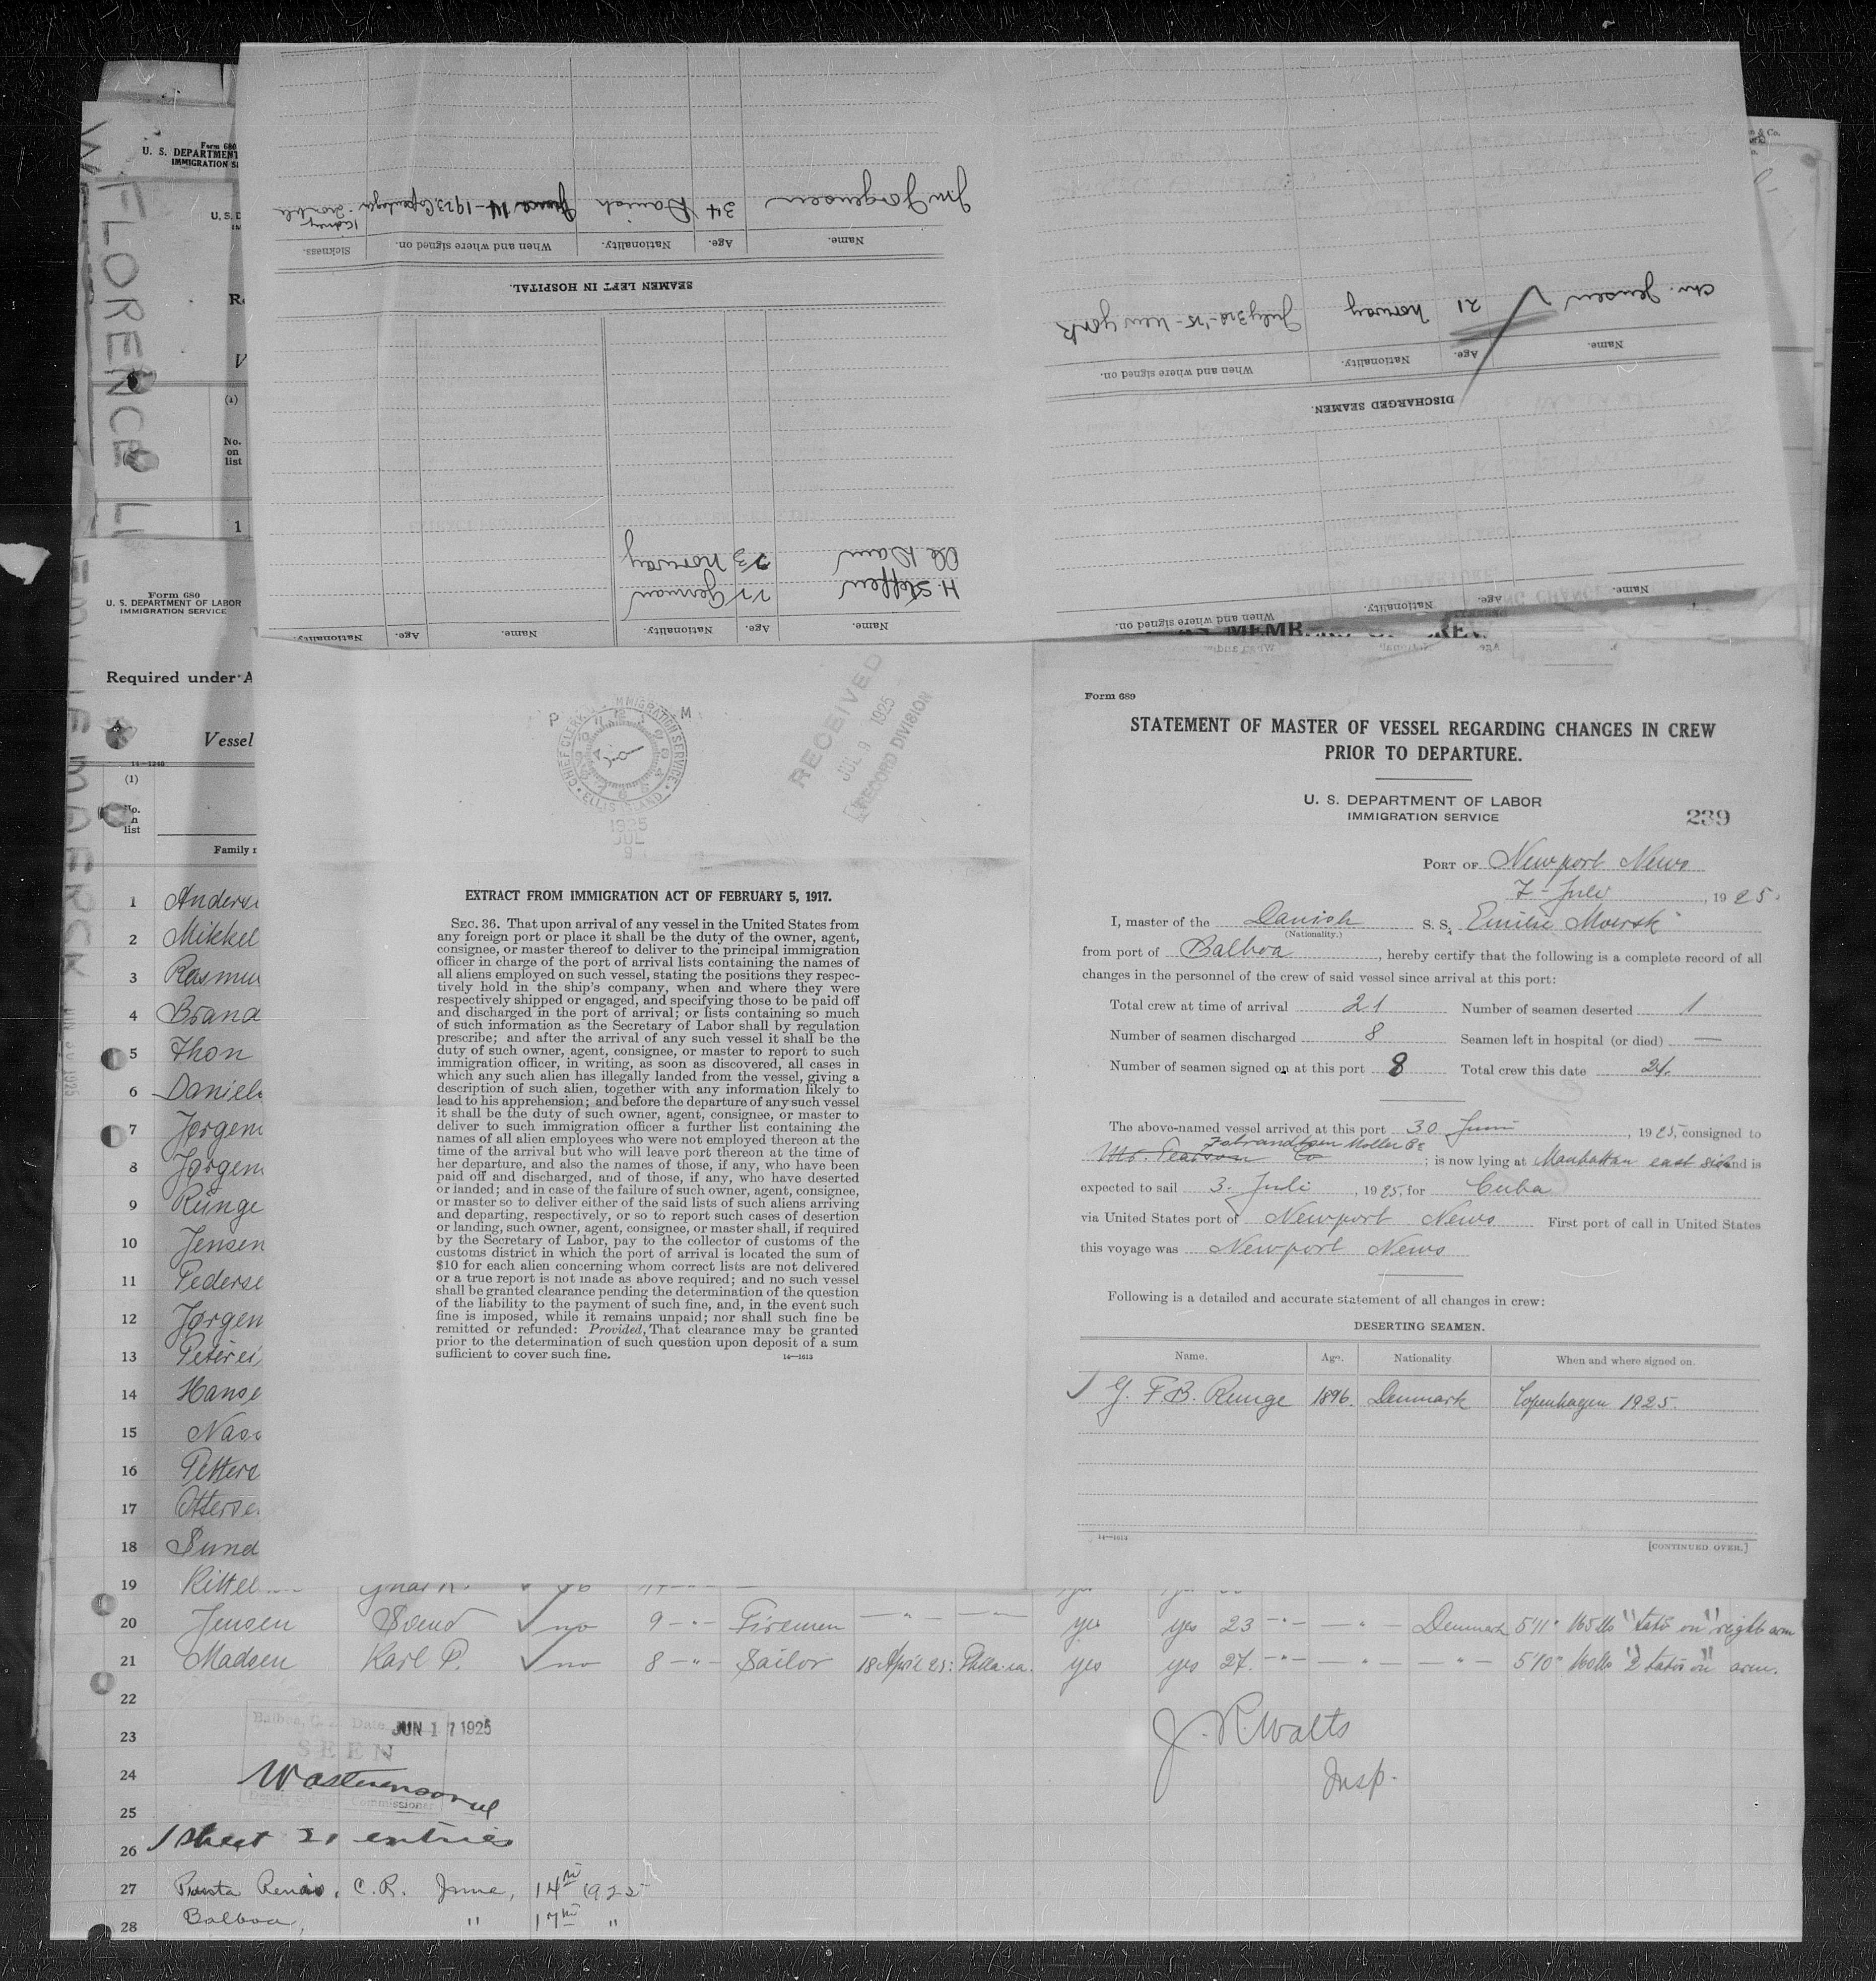 Form 680
U. S. DEPARTMENT
IMMIGRATION
FLORENCE
(1)
No.
on
list
1
Form 680
U. S. DEPARTMENT OF LABOR
IMMIGRATION SERVICE
Required under A
Vessel
(1)
list
Family
EMILIE MAERSK
SEAMEN LEFT IN HOSPITAL.
Name. Age. Nationality. When and where signed on. Sickness.
Jorgensen 34 Danish 14 - 1923 Copenhagen Kidney
Name. Age. Nationality. Name. Age. Nationality.
H. Steffen 22 German
23 Norway
DISCHARGED SEAMEN.
Name. Age. Nationality. When and where signed on.
Chr. Jensen 21 Norway July 3rd - '25 - New York
Name. Age. Nationality. When and where signed on.
P M
CHIEF CLERK IMMIGRATION SERVICE
ELLIS ISLAND
1925
JUL
9
RECEIVED
JUL 9 1925
RECORD DIVISION
EXTRACT FROM IMMIGRATION ACT OF FEBRUARY 5, 1917.
SEC. 36. That upon arrival of any vessel in the United States from
any foreign port or place it shall be the duty of the owner, agent,
consignee, or master thereof to deliver to the principal immigration
officer in charge of the port of arrival lists containing the names of
all aliens employed on such vessel, stating the positions they respec-
tively hold in the ship's company, when and where they were
respectively shipped or engaged, and specifying those to be paid off
and discharged in the port of arrival; or lists containing so much
of such information as the Secretary of Labor shall by regulation
prescribe; and after the arrival of any such vessel it shall be the
duty of such owner, agent, consignee, or master to report to such
immigration officer, in writing, as soon as discovered, all cases in
which any such alien has illegally landed from the vessel, giving a
description of such alien, together with any information likely to
lead to his apprehension; and before the departure of any such vessel
it shall be the duty of such owner, agent, consignee, or master to
deliver to such immigration officer a further list containing the
names of all alien employees who were not employed thereon at the
time of the arrival but who will leave port thereon at the time of
her departure, and also the names of those, if any, who have been
paid off and discharged, and of those, if any, who have deserted
or landed; and in case of the failure of such owner, agent, consignee,
or master so to deliver either of the said lists of such aliens arriving
and departing, respectively, or so to report such cases of desertion
or landing, such owner, agent, consignee, or master shall, if required
by the Secretary of Labor, pay to the collector of customs of the
customs district in which the port of arrival is located the sum of
$10 for each alien concerning whom correct lists are not delivered
or a true report is not made as above required; and no such vessel
shall be granted clearance pending the determination of the question
of the liability to the payment of such fine, and, in the event such
fine is imposed, while it remains unpaid; nor shall such fine be
remitted or refunded: Provided, That clearance may be granted
prior to the determination of such question upon deposit of a sum
sufficient to cover such fine. 14—1613
Form 689
STATEMENT OF MASTER OF VESSEL REGARDING CHANGES IN CREW
PRIOR TO DEPARTURE.
U. S. DEPARTMENT OF LABOR
IMMIGRATION SERVICE
239
PORT OF Newport News
7 - Juli, 1925.
I, master of the Danish S. S. Emilie Mærsk
(Nationality.)
from port of Balboa, hereby certify that the following is a complete record of all
changes in the personnel of the crew of said vessel since arrival at this port:
Total crew at time of arrival 21 Number of seamen deserted 1
Number of seamen discharged 8 Seamen left in hospital (or died) —
Number of seamen signed on at this port 8 Total crew this date 21.
The above-named vessel arrived at this port 30 Juni, 1925, consigned to
Moller Co
; is now lying at Manhattan east side and is
expected to sail 3. Juli, 1925, for Cuba
via United States port of Newport News First port of call in United States
this voyage was Newport News
Following is a detailed and accurate statement of all changes in crew:
DESERTING SEAMEN.
Name. Age. Nationality When and where signed on.
G. F.B. Runge 1896. Denmark Copenhagen 1925.
14—1613
[CONTINUED OVER.]
1 Anders
2 Mikkel
3 Rasmu
4 Brand
5 Thon
6 Daniel
7 Jørgen
8 Jørgen
9 Runge
10 Jensen
11 Pederse
12 Jørgen
13 Peterse
14 Hanse
15
16 Petters
17 Otterse
18 Sund
19 Kittel
20 Jensen Svend no 9 -"- Firemen —"— —"— yes yes 23 -"- —"— Denmark 5'11" 165 lb "tato on" right arm
21 Madsen Karl P. no 8 -"- Sailor 18 April 25: Phila. Pa. yes yes 27. -"- —"— —"— 5'10" 160 lb "2 tatos on" arm.
22
23
24
25
26
27
28
Balboa, C. Z. Date JUN 17 1925
SEEN
Deputy Commissioner
1 sheet 21 entries
Punta Arenas, C.R. June, 14th 1925
Balboa, " 17th "
J. R. Walts
Insp.